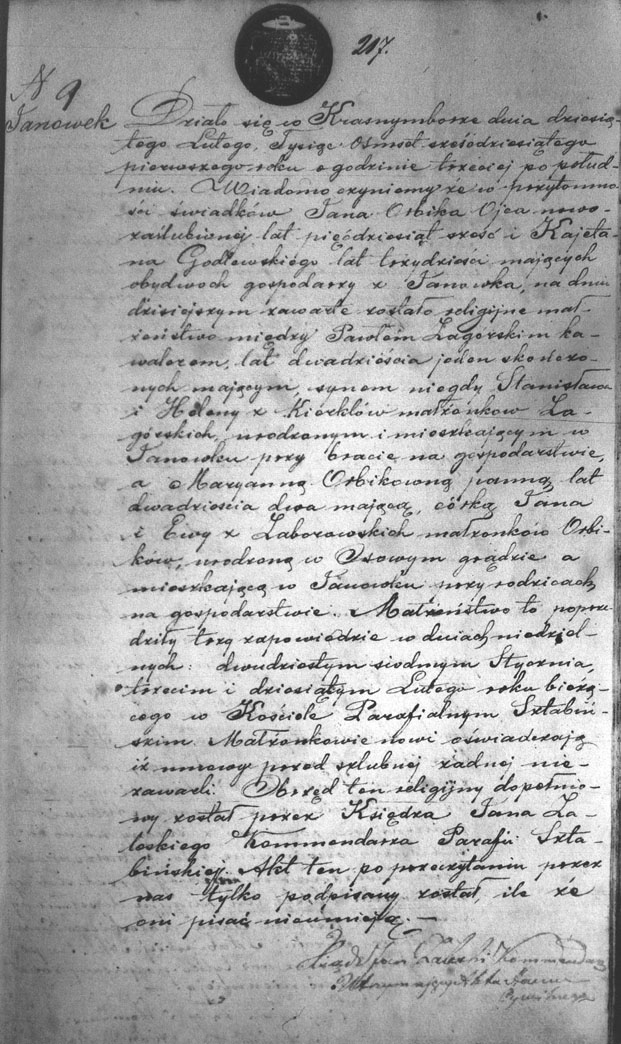 217.
N 9
Janowek
Działo się w Krasnymborze dnia dziesią-
tego Lutego, Tysiąc Ośmset sześćdziesiątego
pierwszego roku o godzinie trzeciej po połud-
niu. Wiadomo czyniemy że w przytomno-
ści świadków Jana Orbika Ojca nowo-
zaślubionej lat pięćdziesiąt sześć i Kajeta-
na Godlewskiego lat trzydzieści mających
obydwóch gospodarzy z Janowka, na dniu
dzisiejszym zawarte zostało religijne mał-
żeństwo między Pawłem Zagórskim ka-
walerem, lat dwadzieścia jeden skończo-
nych mającym, synem niegdy Stanisława
i Heleny z Kierklów małżonkow Za-
górskich, urodzonym i mieszkającym w
Janowku przy bracie na gospodarstwie,
a Maryanną Orbikowną panną, lat
dwadzieścia dwa mającą, córką Jana
i Ewy z Zaborowskich małżonków Orbi-
ków, urodzoną w Osowym grądzie a
mieszkającą w Janowku przy rodzicach
na gospodarstwie. Małżeństwo to poprze-
dziły trzy zapowiedzie w dniach niedziel-
nych: dwudziestym siodmym Stycznia,
trzecim i dziesiątym Lutego roku bieżą-
cego w Kościele Parafialnym Sztabiń-
skim. Małżonkowie nowi oświadczają
iż umowy przed szlubnej żadnej nie-
zawarli. Obrzęd ten religijny dopełnio-
ny został przez Księdza Jana Za-
leskiego Kommendarza Parafii Szta-
bińskiej. Akt ten po przeczytaniu przez
nas tylko podpisany został, ile że
oni pisać nieumieją.—
Ksiądz Jan Zaleski Kommendarz
Utrzymujący Akta Stanu
Cywilnego